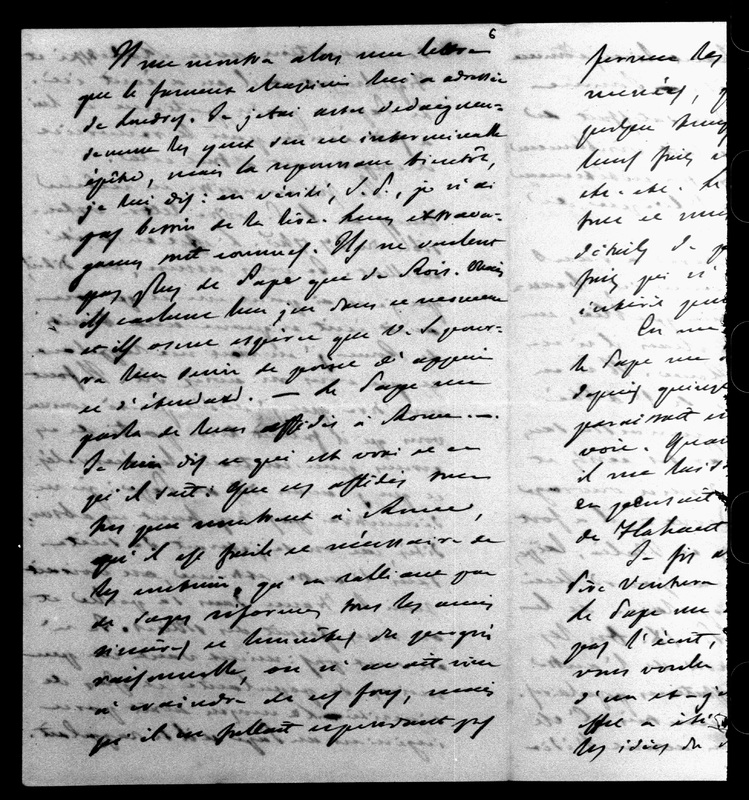 6
Il me montra alors une lettre
que le fameux Mazzini lui a adressée
de Londres. Je jetai assez dédaigneu=
sement les yeux sur cette interminable
épître, mais la repoussant bientôt,
je lui dis: en vérité, S. P., je n'ai
pas besoin de la lire. Leurs extrava-
gances sont connues. Ils ne veulent
pas plus de Papes que de Rois. Mais
ils cachent leur jeu dans ce moment
et ils osent espérer que V. S. pour-
ra leur servir de point d'appui
et d'étendard. — Le Pape me
parla de leurs affidés à Rome. —
Je lui dis ce qui est vrai et ce
qu'il sait: que ces affidés sont
très peu nombreux à Rome,
qu'il est facile et nécessaire de
les contenir, qu'en ralliant par
de sages réformes tous les amis
sincères et honnêtes du progrès
raisonnable, on n'avait rien
à craindre de ces fous, mais
qu'il ne fallait cependant pas
permis les
menées,
quelque temps
leurs frais
etc. etc. Le
détails de
frais qui n'
intérieur
En me
le Pape me
depuis quinze
paraissait
voir. Quan
il me
en pensait
de
Je fis
Père Ventura
Le Pape me
pas l'écrit,
vous voulez
d'un et
effet a été
les idées du